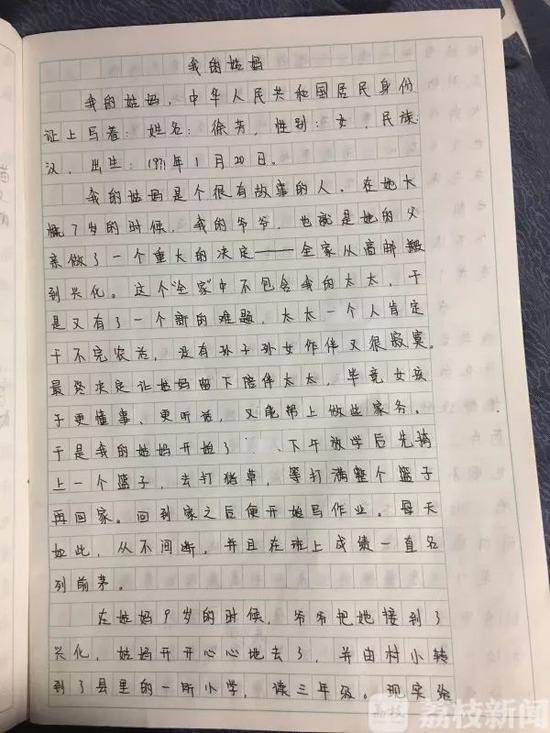 我的姑妈
我的姑妈，中华人民共和国居民身份
证上写着：姓名：徐芳，性别：女，民族：
汉，出生：1971年1月20日。
我的姑妈是个很有故事的人，在她大
概7岁的时候，我的爷爷，也就是她的父
亲做了一个重大的决定——全家从高邮搬
到兴化。这个"全家"中不包含我的太太，于
是又有了一个新的难题，太太一个人肯定
干不完农活，没有孙子孙女作伴又很寂寞。
最终决定让姑妈留下陪伴太太，毕竟女孩
子更懂事、更听话，又能帮上做些家务。
于是我的姑妈开始了 下午放学后先摘
上一个篮子，去打猪草，等打满整个篮子
再回家。回到家之后便开始写作业。每天
如此，从不间断，并且在班上成绩一直名
列前茅。
在姑妈9岁的时候，爷爷把她接到了
兴化，姑妈开开心心地去了，并由村小转
到了县里的一所小学，读三年级。现实给
荔枝新闻